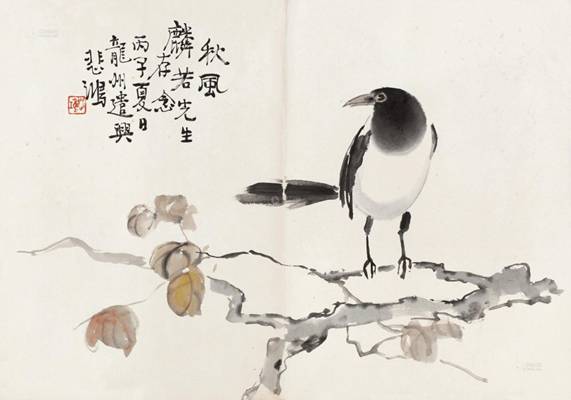 秋風
麟若先生
存念
丙子夏日
龍州遣興
悲鴻